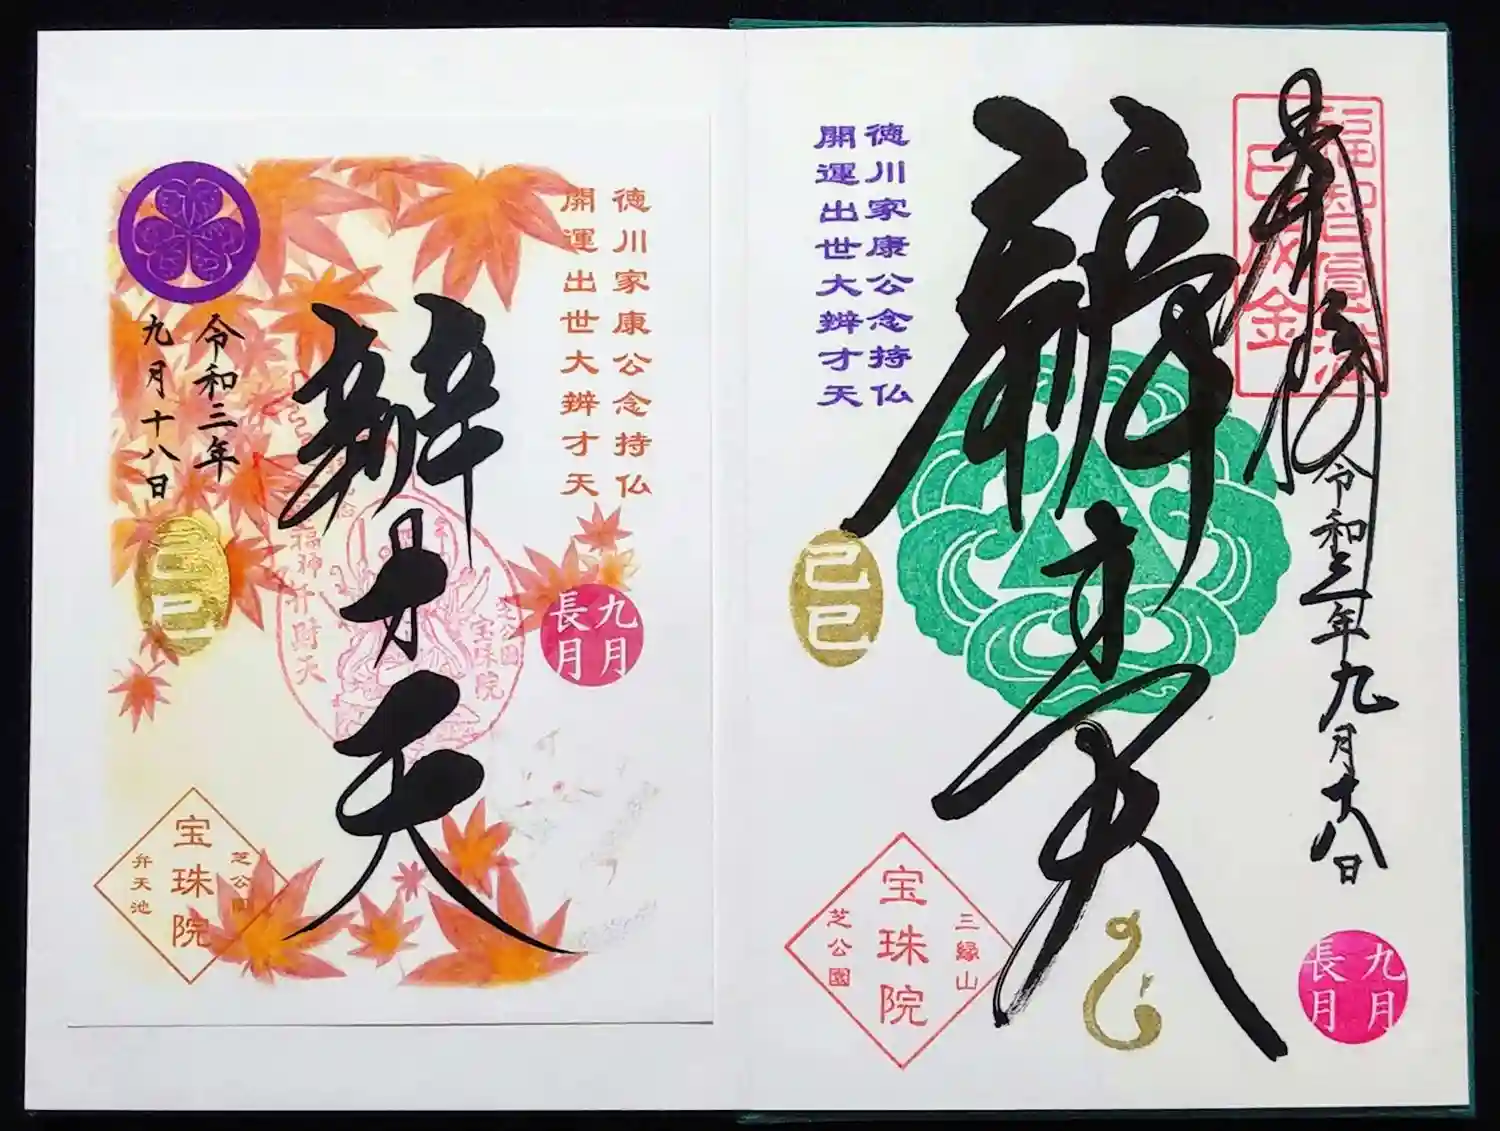 奉拝
令和三年九月十八日
福智円満
己巳金
辨才天
徳川家康公念持仏
開運出世大辨才天
己巳
九月
長月
三縁山
宝珠院
芝公園
徳川家康公念持仏
開運出世大辨才天
辨才天
令和三年
九月十八日
己巳
九月
長月
芝公園
宝珠院
福神
弁財天
芝公園
宝珠院
弁天池